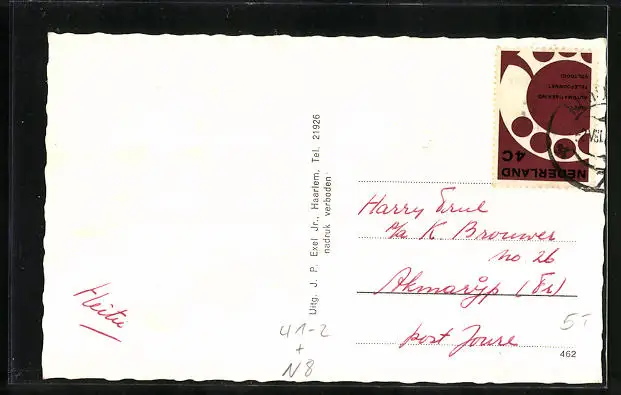 Uitg. J. P. Exel Jr., Haarlem, Tel. 21926
nadruk verboden
NEDERLAND
4C
AUTOMATISERING
TELEFOONNET
VOLTOOID
Harry
p/a K. Brouwer
no 26
Akmarijp (Fr)
post Joure
462
5-
Heitie
41-2
+
N8